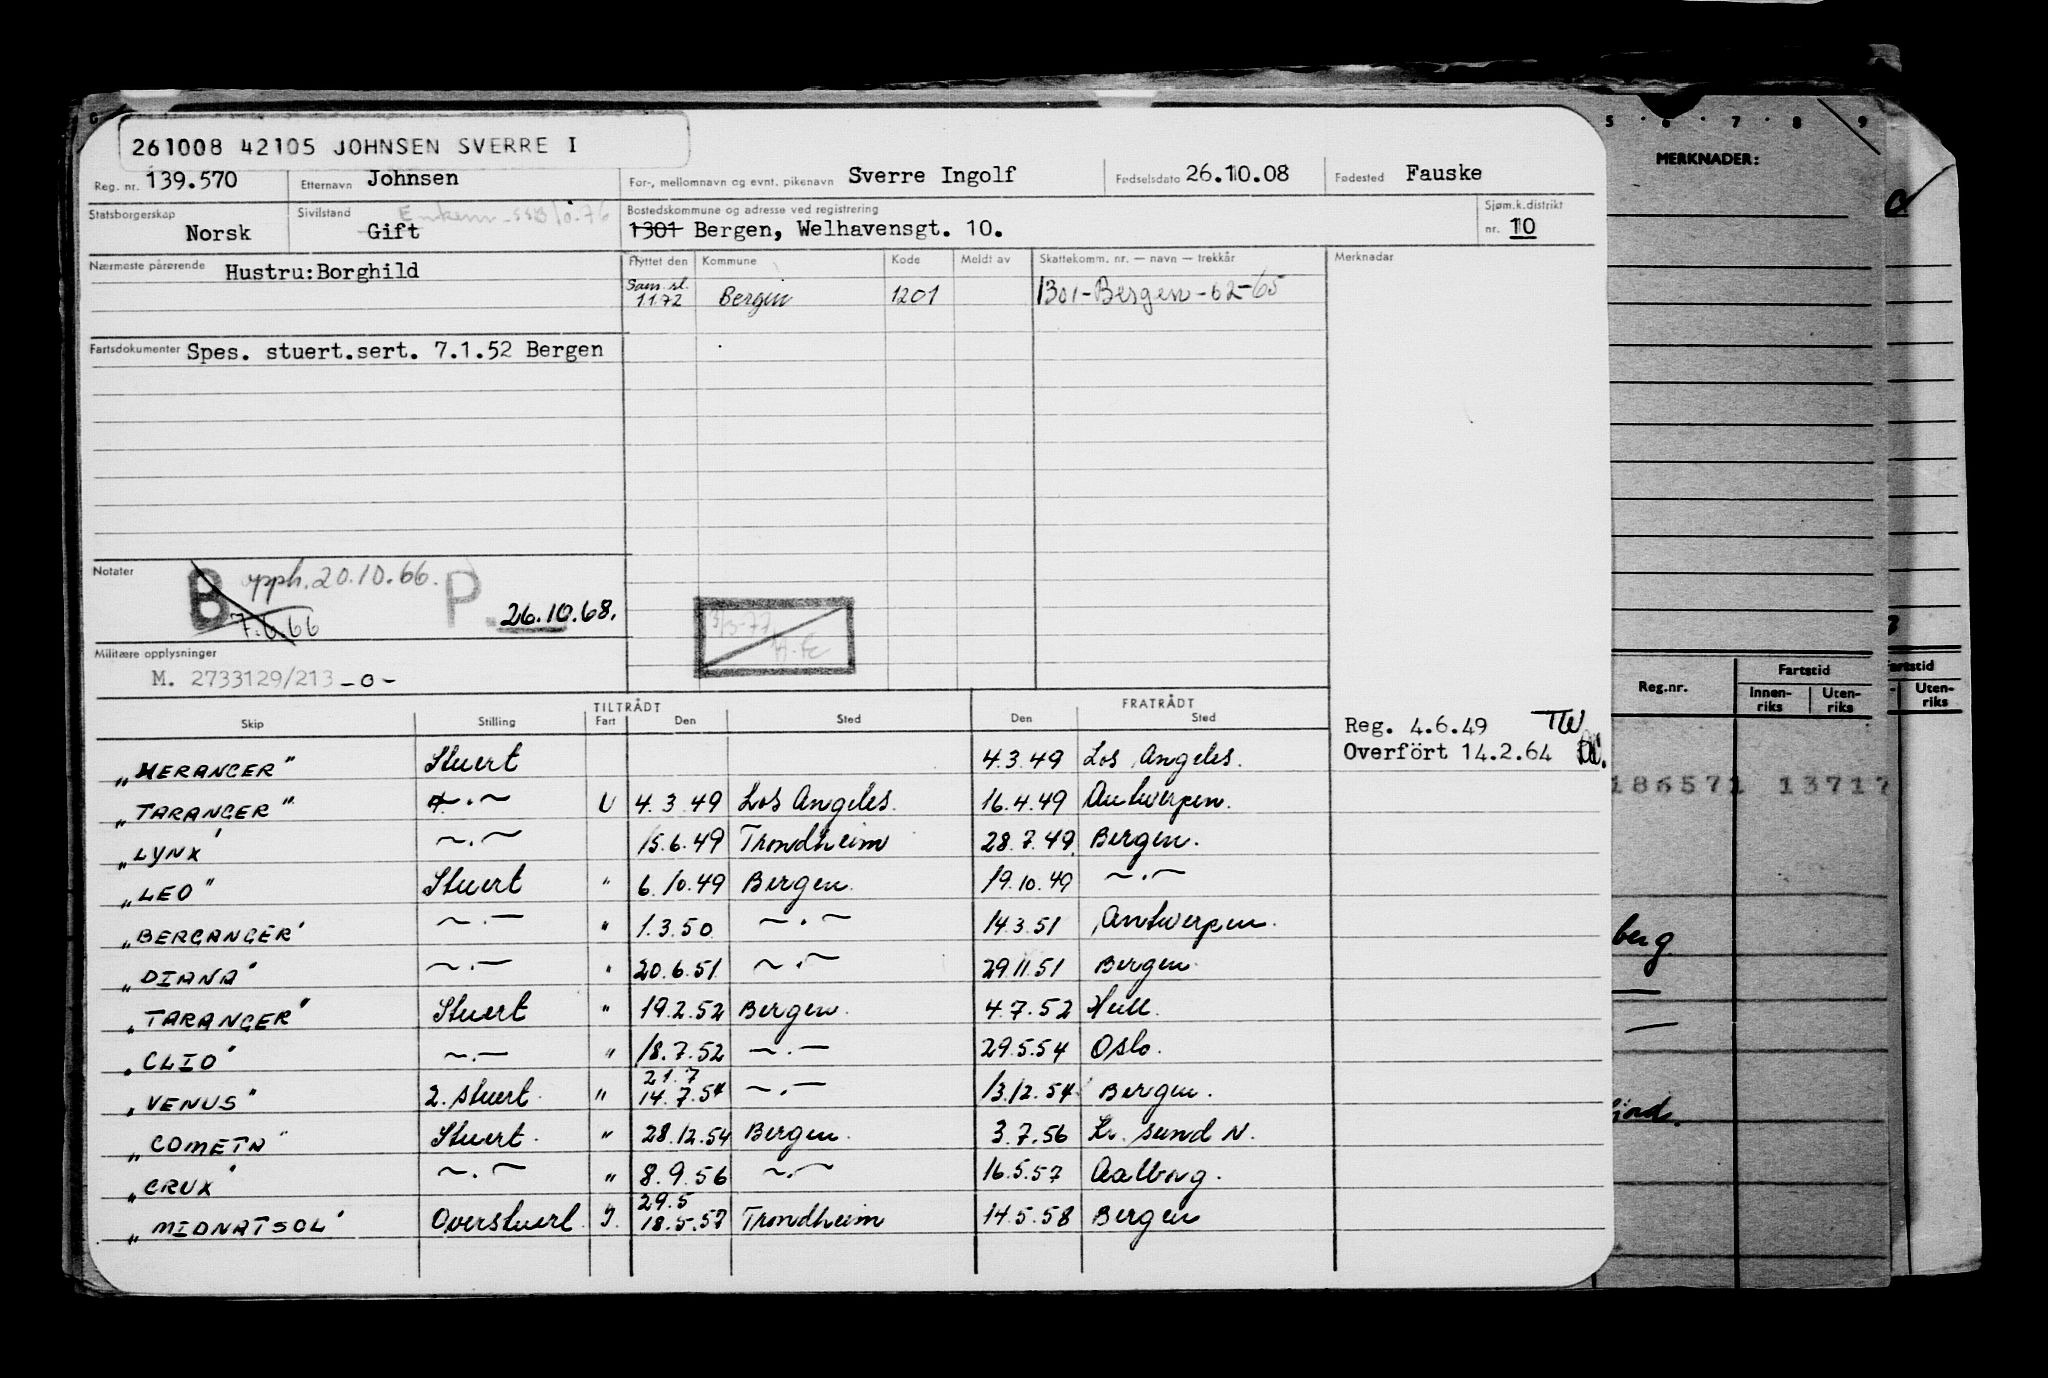 261008 42105 JOHNSEN SVERRE I
Reg. nr. 139.570 Etternavn Johnsen For-, mellomnavn og evnt. pikenavn Sverre Ingolf Fødselsdato 26.10.08 Fødested Fauske
Statsborgerskap Norsk Sivilstand Gift Bostedskommune og adresse ved registrering 1301 Bergen, Welhavensgt. 10. Sjøm.k.distrikt nr. 10
Nærmeste pårørende Hustru:Borghild Flyttet den Kommune Kode Meldt av Skattekomm. nr. — navn — trekkår Merknader
Sam.sl. 1.1.72 Bergen 1201 1301-Bergen-62-65
Fartsdokumenter Spes. stuert.sert. 7.1.52 Bergen
Notater B opph. 20.10.66. P. 26.10.68.
7.6.66
Militære opplysninger
M. 2733129/213 -0-
TILTRÅDT FRATRÅDT
Skip Stilling Fart Den Sted Den Sted
Reg. 4.6.49 TW
Overfört 14.2.64
"HERANGER" Stuert 4.3.49 Los Angeles.
"TARANGER" —.— U 4.3.49 Los Angeles. 16.4.49 Antwerpen.
"LYNX" —.— 15.6.49 Trondheim 28.7.49 Bergen.
"LEO" Stuert " 6.10.49 Bergen. 19.10.49 —.—
"BERGANGER" —.— " 1.3.50 —.— 14.3.51 Antwerpen.
"DIANA" —.— " 20.6.51 —.— 29.11.51 Bergen
"TARANGER" Stuert " 19.2.52 Bergen. 4.7.52 Hull.
"CLIO" —.— " 18.7.52 —.— 29.5.54 Oslo.
"VENUS" 2. stuert " 21.7 14.7.54 —.— 13.12.54 Bergen.
"COMETA" Stuert. " 28.12.54 Bergen. 3.7.56 Kr. sund N.
"CRUX" —.— " 8.9.56 —.— 16.5.57 Aalborg.
"MIDNATSOL" Overstuert I. 29.5 18.5.57 Trondheim 14.5.58 Bergen
5 . 6 . 7 . 8 . 9
MERKNADER:
Reg.nr. Fartstid
Innen-riks Uten-riks
Fartstid
Uten-riks
186571 13717
berg